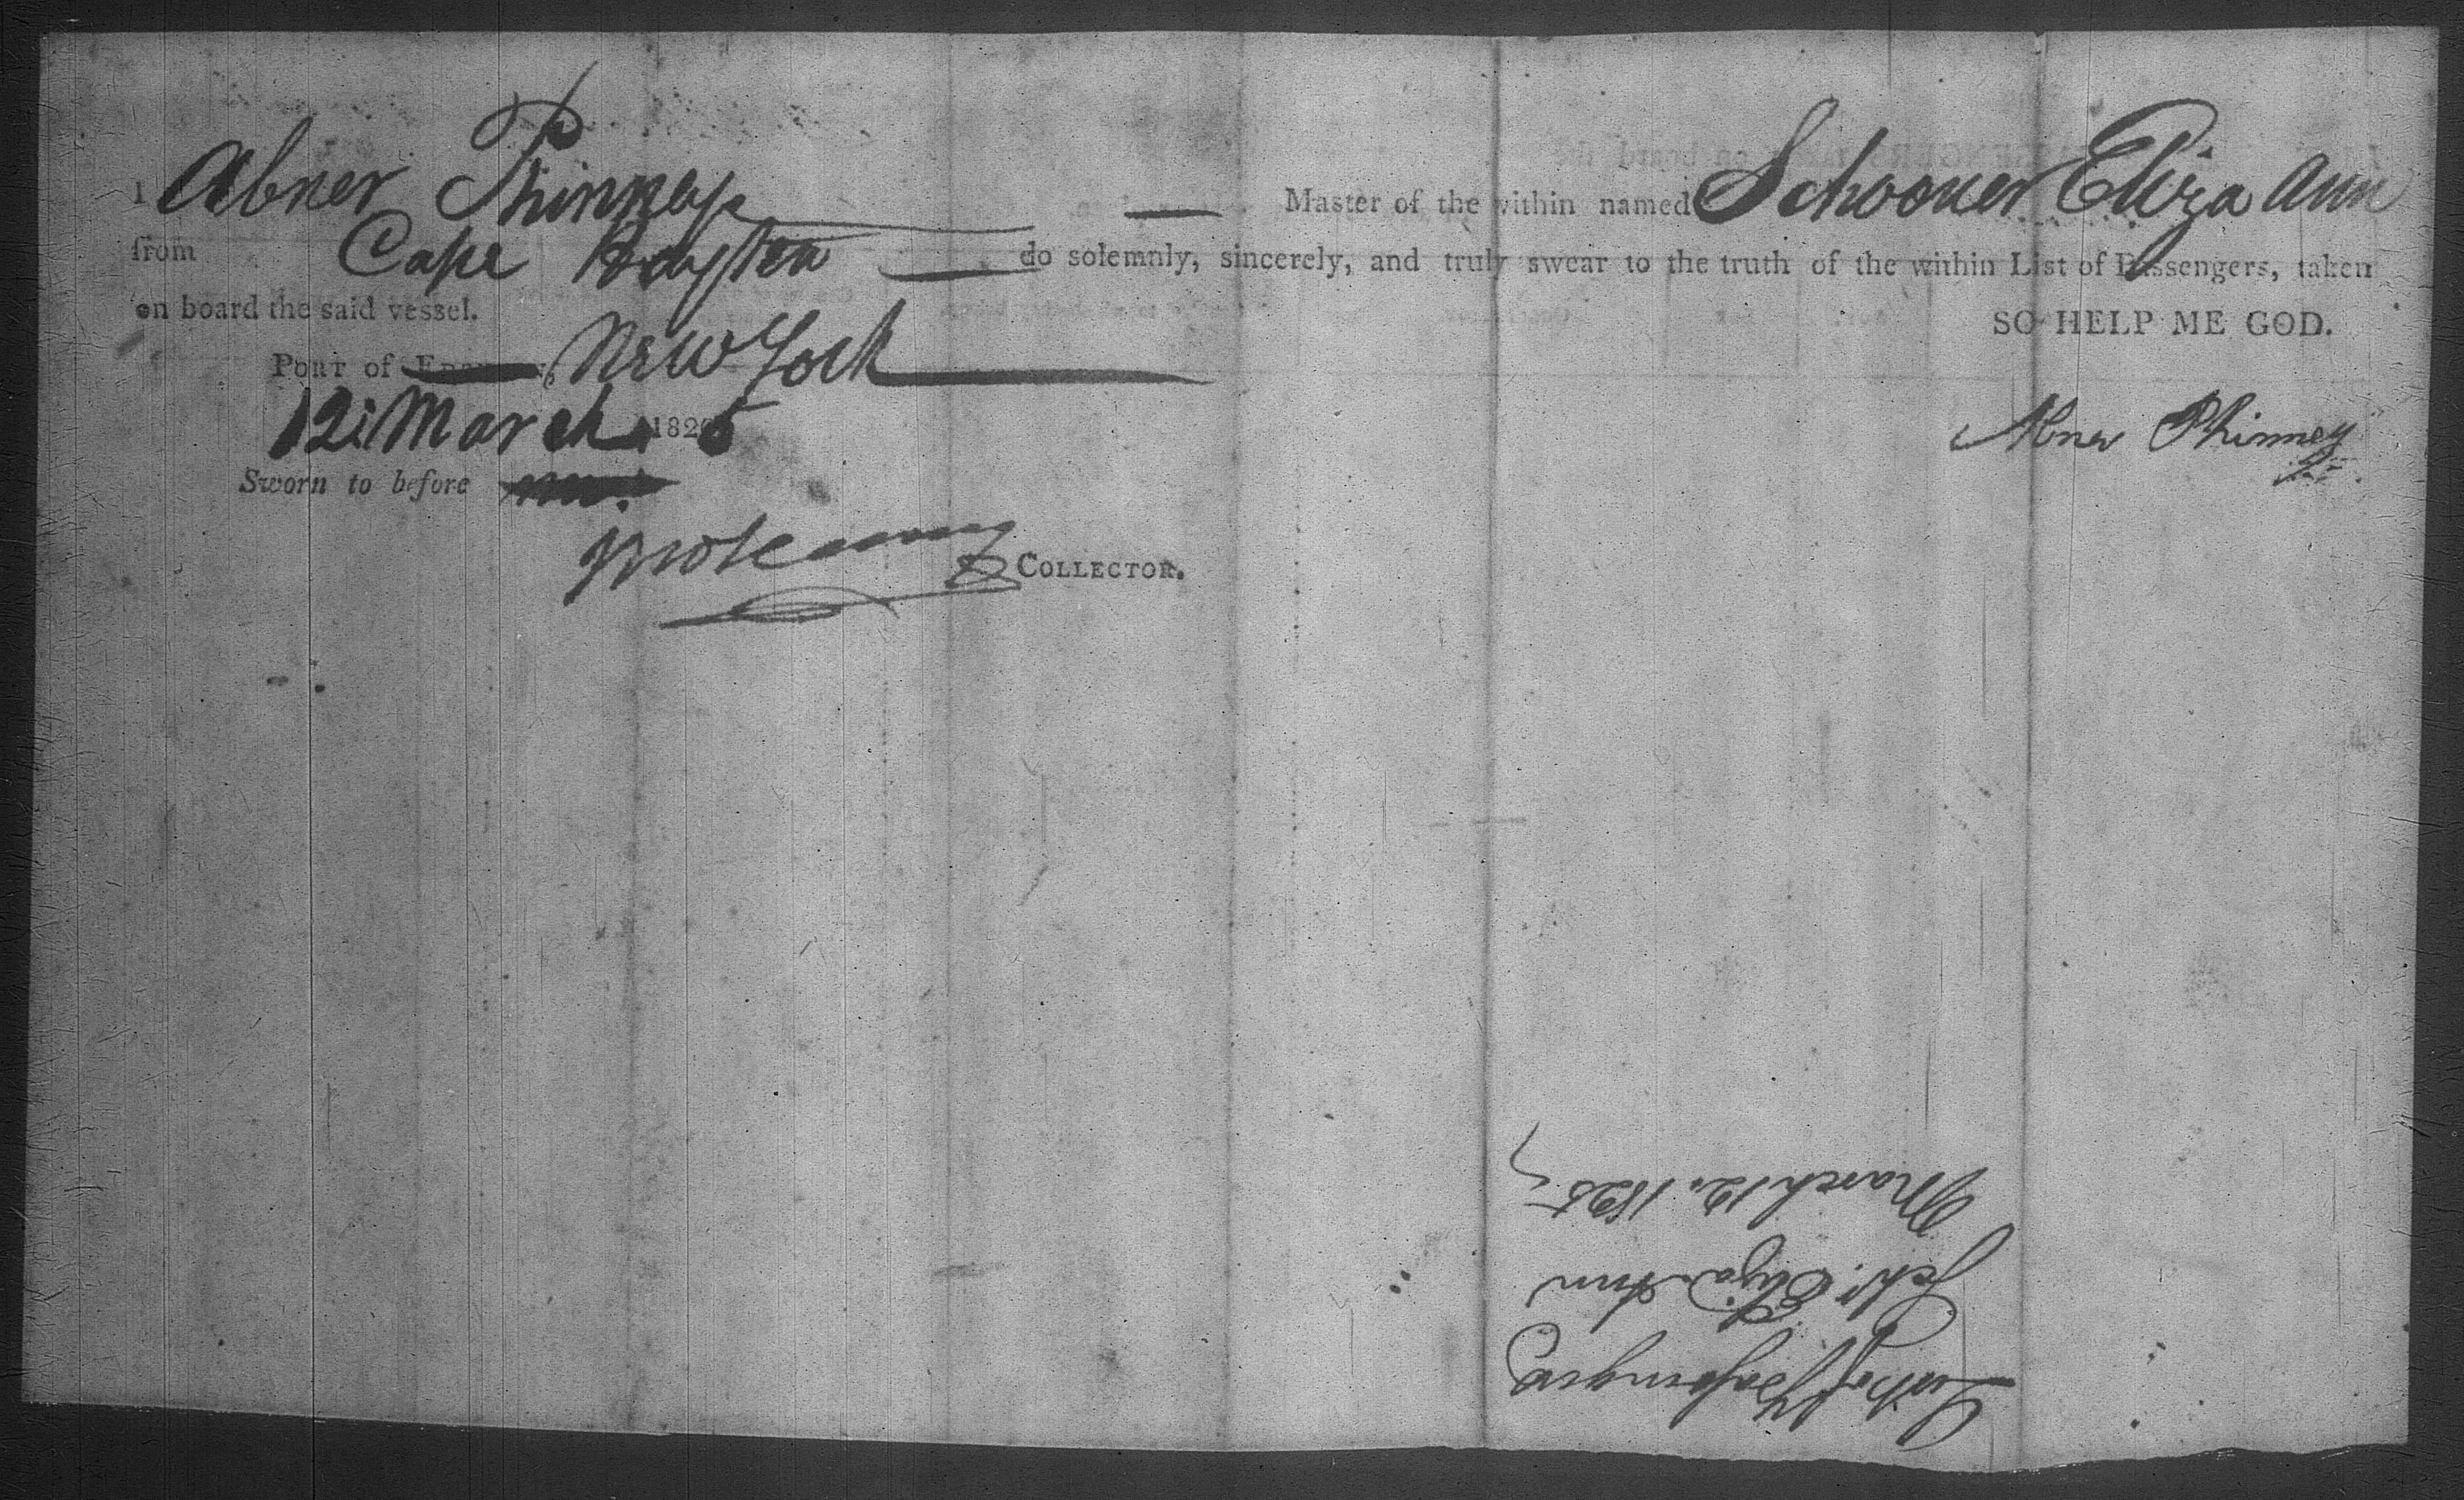 I Abner Phinney Master of the within named Schooner Eliza Ann
from Cape Hayten do solemnly, sincerely, and truly swear to the truth of the within List of Passengers, taken
on board the said vessel.
SO HELP ME GOD.
Port of New York
12 March 1825
Abner Phinney
Sworn to before me.
COLLECTOR.
List of Passengers
Schr. Eliza Ann
March 12. 1825